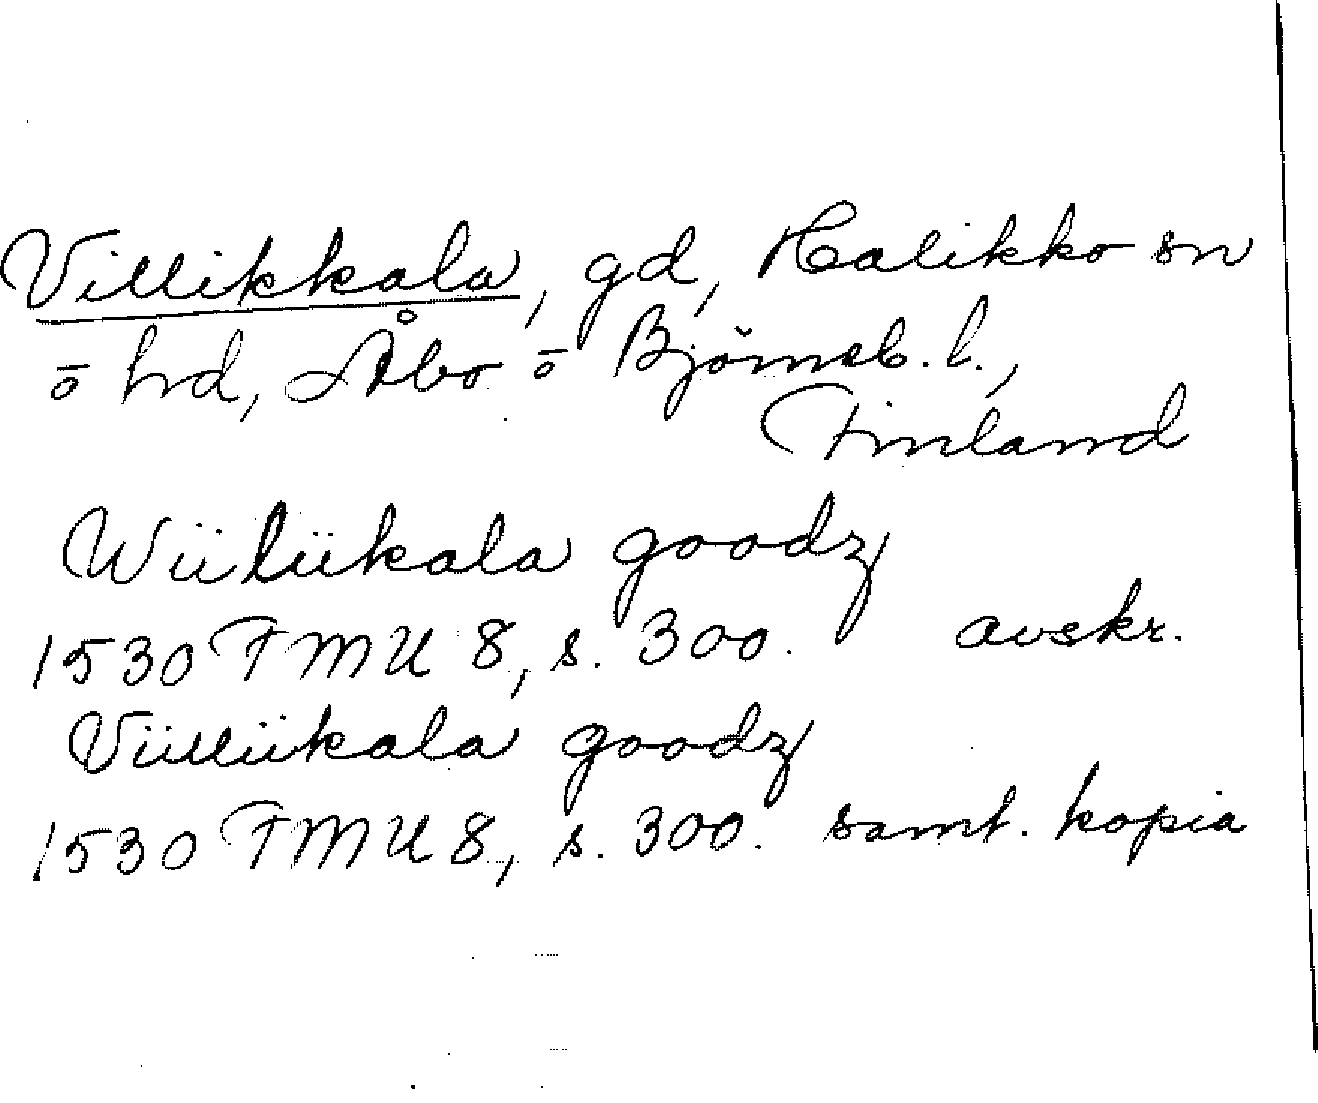 Villikkala, gd, Halikko sn
ō hd, Åbo ō Björneb. l.,
Finland
Wiiliikala goodz
1530 FMU 8, s. 300. avskr.
Viilliikala goodz
1530 FMU 8, s. 300. samt. kopia